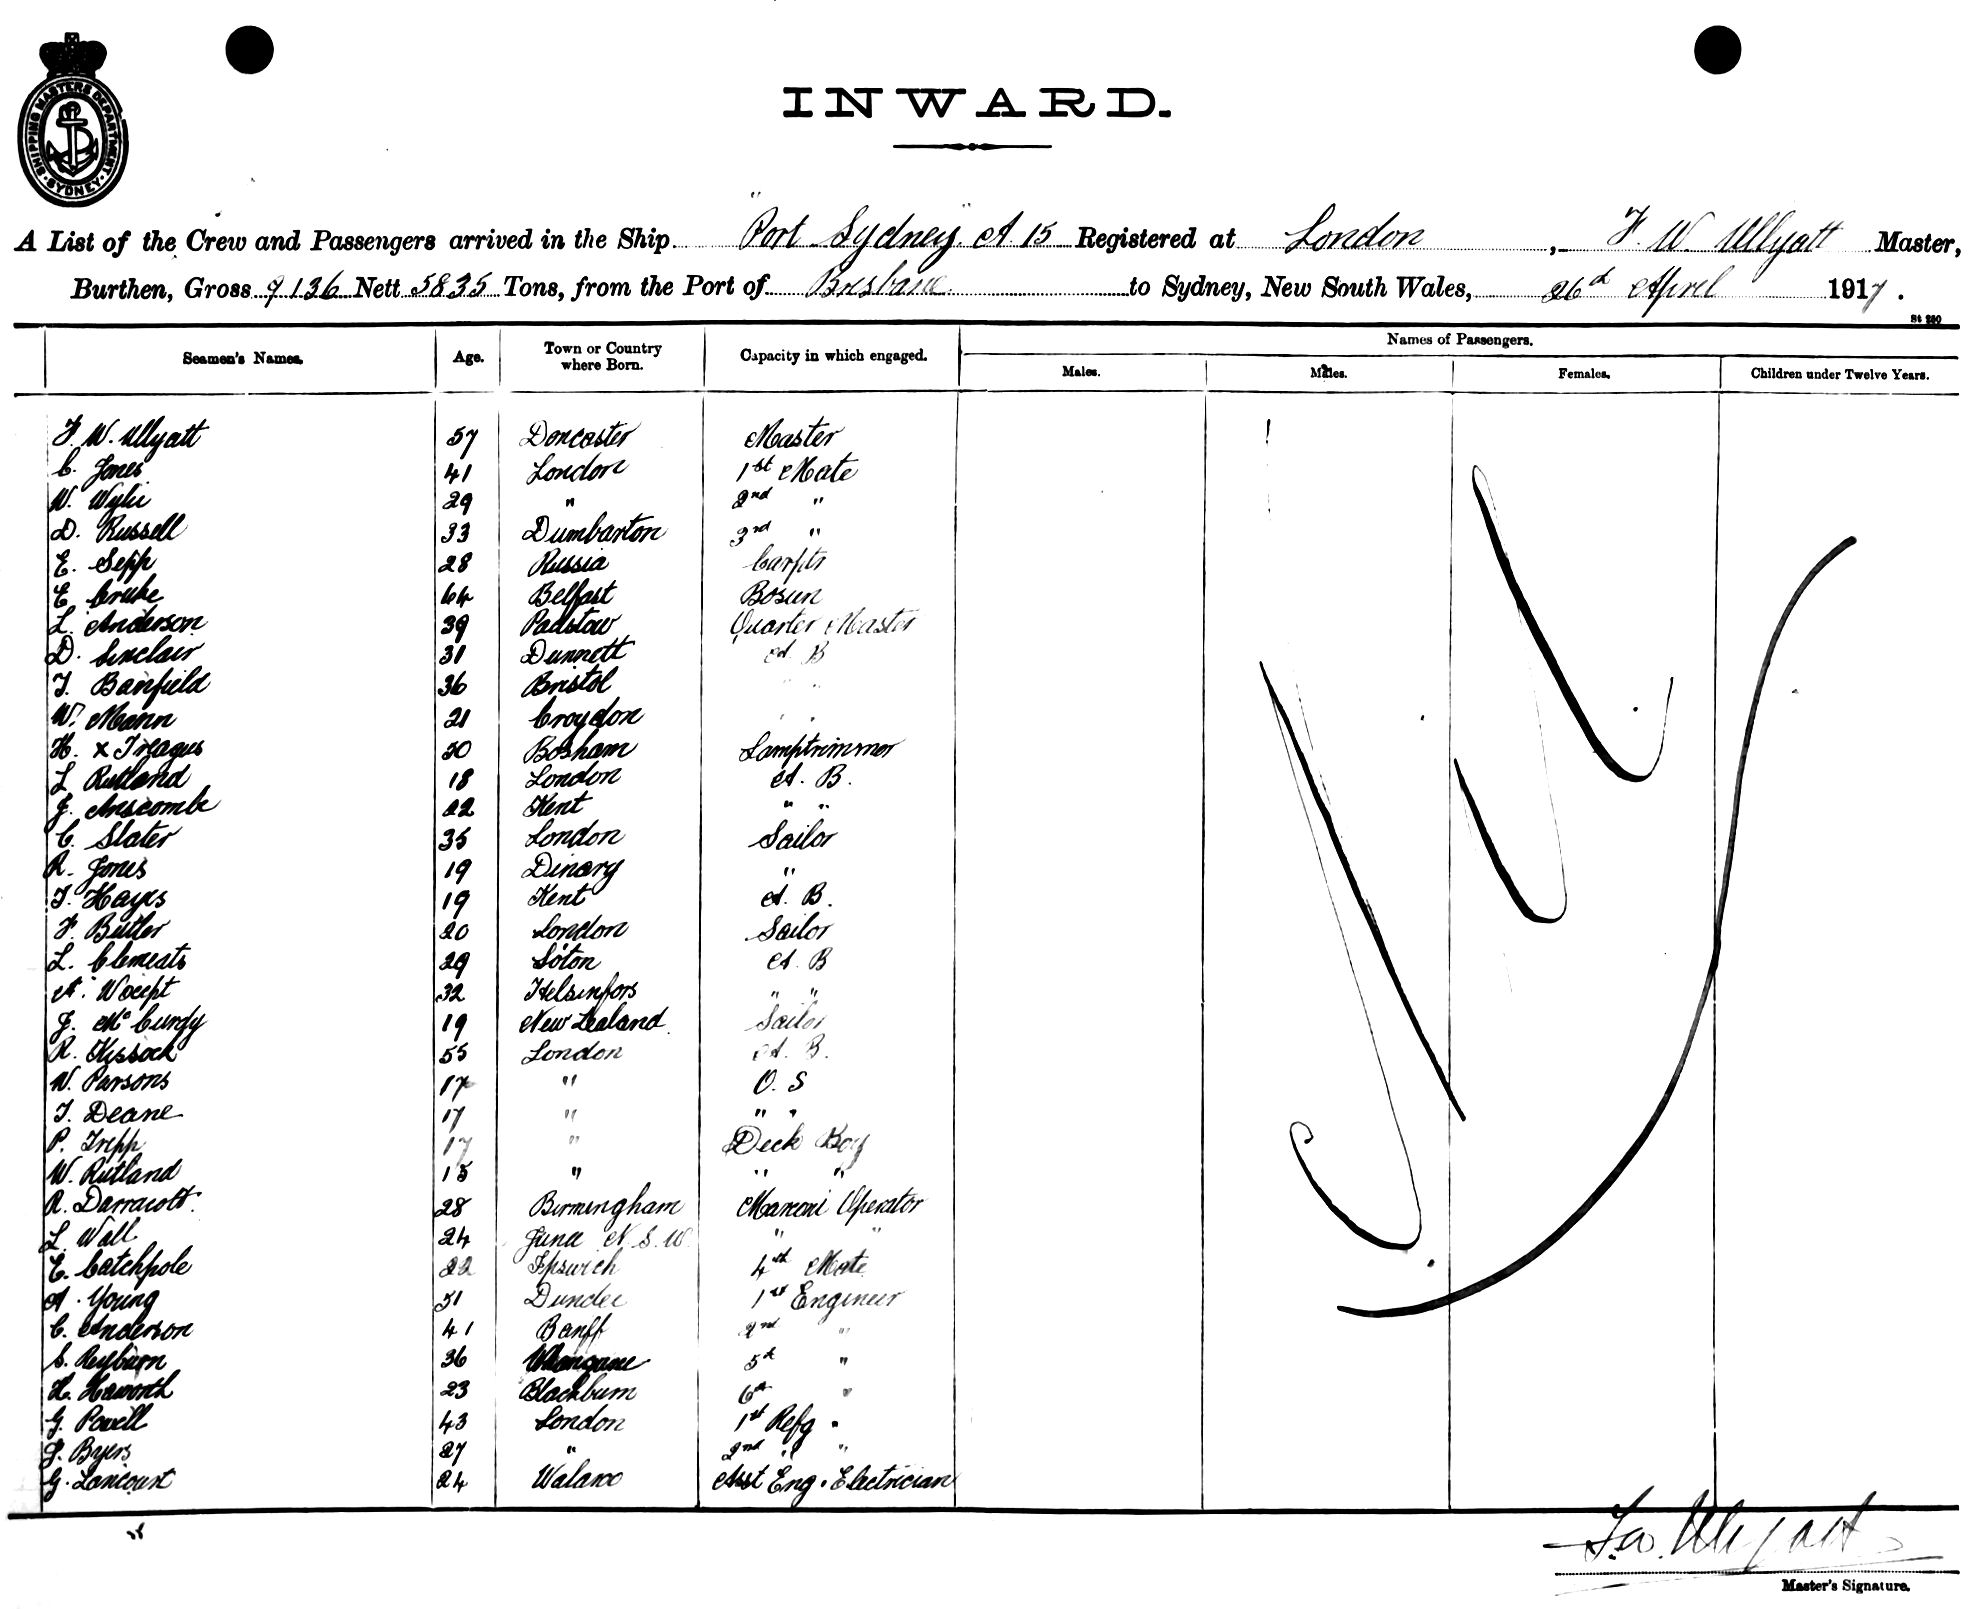 SHIPPING MASTERS DEPARTMENT · SYDNEY ·
INWARD.
A List of the Crew and Passengers arrived in the Ship "Port Sydney" A 15 Registered at London, F. W Ullyatt Master,
Burthen, Gross 9136 Nett 5835 Tons, from the Port of Brisbane to Sydney, New South Wales, 26th April 1917.
St 280
Seamen's Names. Age. Town or Country where Born. Capacity in which engaged. Names of Passengers.
Males. Males. Females. Children under Twelve Years.
F. W. Ullyatt 57 Doncaster Master
C. Jones 41 London 1st Mate
W. Wylie 29 " 2nd "
D. Russell 33 Dumbarton 3rd "
E. Sepp 28 Russia Carptr
E. Cruke 64 Belfast Bosun
L. Anderson 39 Padstow Quarter Master
D. Sinclair 31 Dunnett A. B
T. Banfield 36 Bristol " "
W. Mann 21 Croydon " "
H. x Treagus 50 Bosham Lamptrimmer
L Rutland 18 London A. B.
J. Anscombe 22 Kent " "
C. Slater 35 London Sailor
R. Jones 19 Dinary "
T. Hayes 19 Kent A. B.
F. Butler 20 London Sailor
L. Clements 29 Soton A. B
A. 32 Helsinfors " "
J. McCurdy 19 New Zealand Sailor
R. Kissock 55 London A. B.
W. Parsons 17 " O. S
T. Deane 17 " " "
P. Tripp 17 " Deck Boy
W. Rutland 15 " " "
R. Darracott. 28 Birmingham Marconi Operator
L. Wall 24 June N. S. W. " "
E. Catchpole 22 Ipswich 4th Mate
A. Young 51 Dundee 1st Engineer
C. Anderson 41 Banff 2nd "
S. Reyburn 36 5th "
H. Haworth 23 Blackburn 6th "
G. Powell 43 London 1st Refg "
J. Byers 27 " 2nd " "
G. 24 Asst Eng. Electrician
F. W. Ullyatt
Master's Signature.